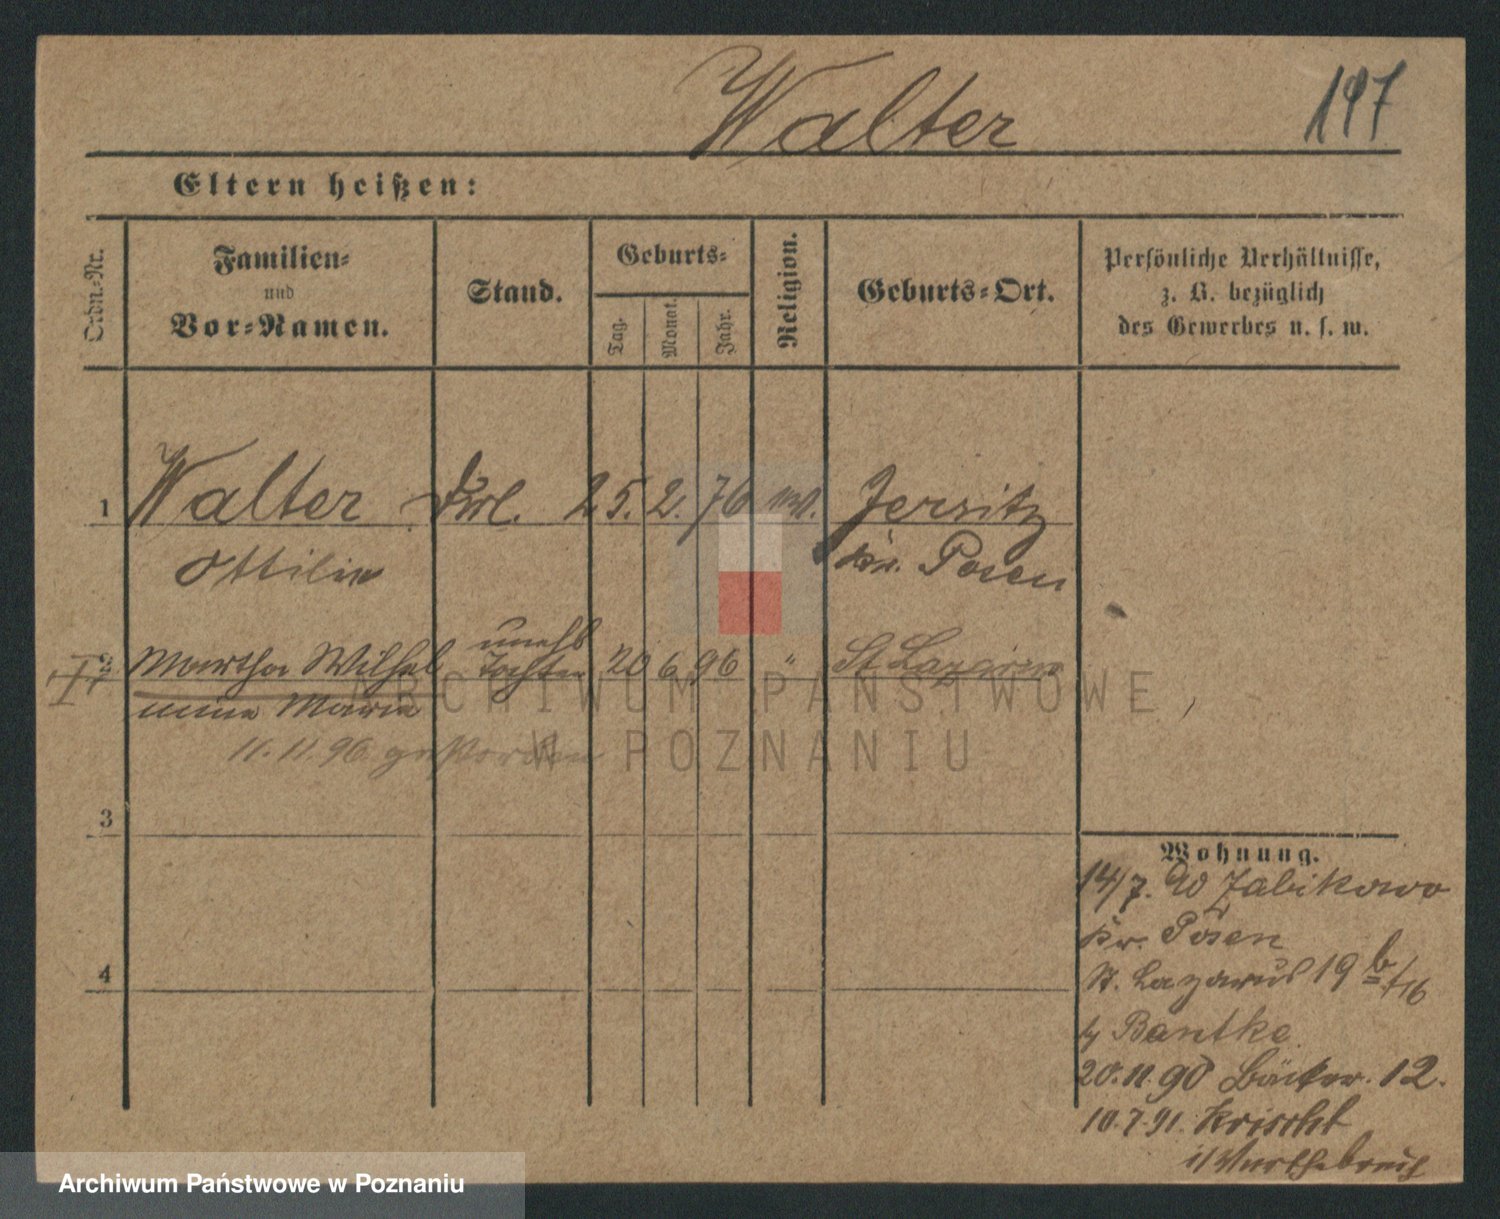 Walter
197
Eltern heißen:
Ordn.-Nr.
Familien-
und
Vor-Namen.
Stand.
Geburts-
Tag.
Monat.
Jahr.
Religion.
Geburts-Ort.
Persönliche Verhältnisse,
z. B. bezüglich
des Gewerbes u. s. w.
1 Walter Frl. 25. 2. 76 Jersitz
Ottilie Kr. Posen
unehl
2 Martha Wilhel Tochter 20 6 96 " St Lazarus
mine Maria
11.11.96 gestorben
3
4
Wohnung.
14/7. Zabikowo
Kr. Posen
St. Lazarus 19 b/16
by Bantke
20.11.90 Bäcker. 12.
10.7.91.
i/ Warthebruch
ARCHIWUM PAŃSTWOWE
W POZNANIU
Archiwum Państwowe w Poznaniu